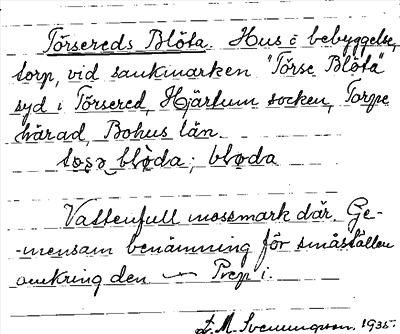 Törsereds Blöta. Hus o bebyggelse,
torp, vid sankmarken "Törse Blöta"
syd i Törsered, Hjärtum socken, Torpe
härad, Bohus län.
blöda; bløda
Vattenfull mossmark där. Ge-
-mensam benämning för småställen
omkring den — Prep i.
L. M. Svenungsson. 1935.